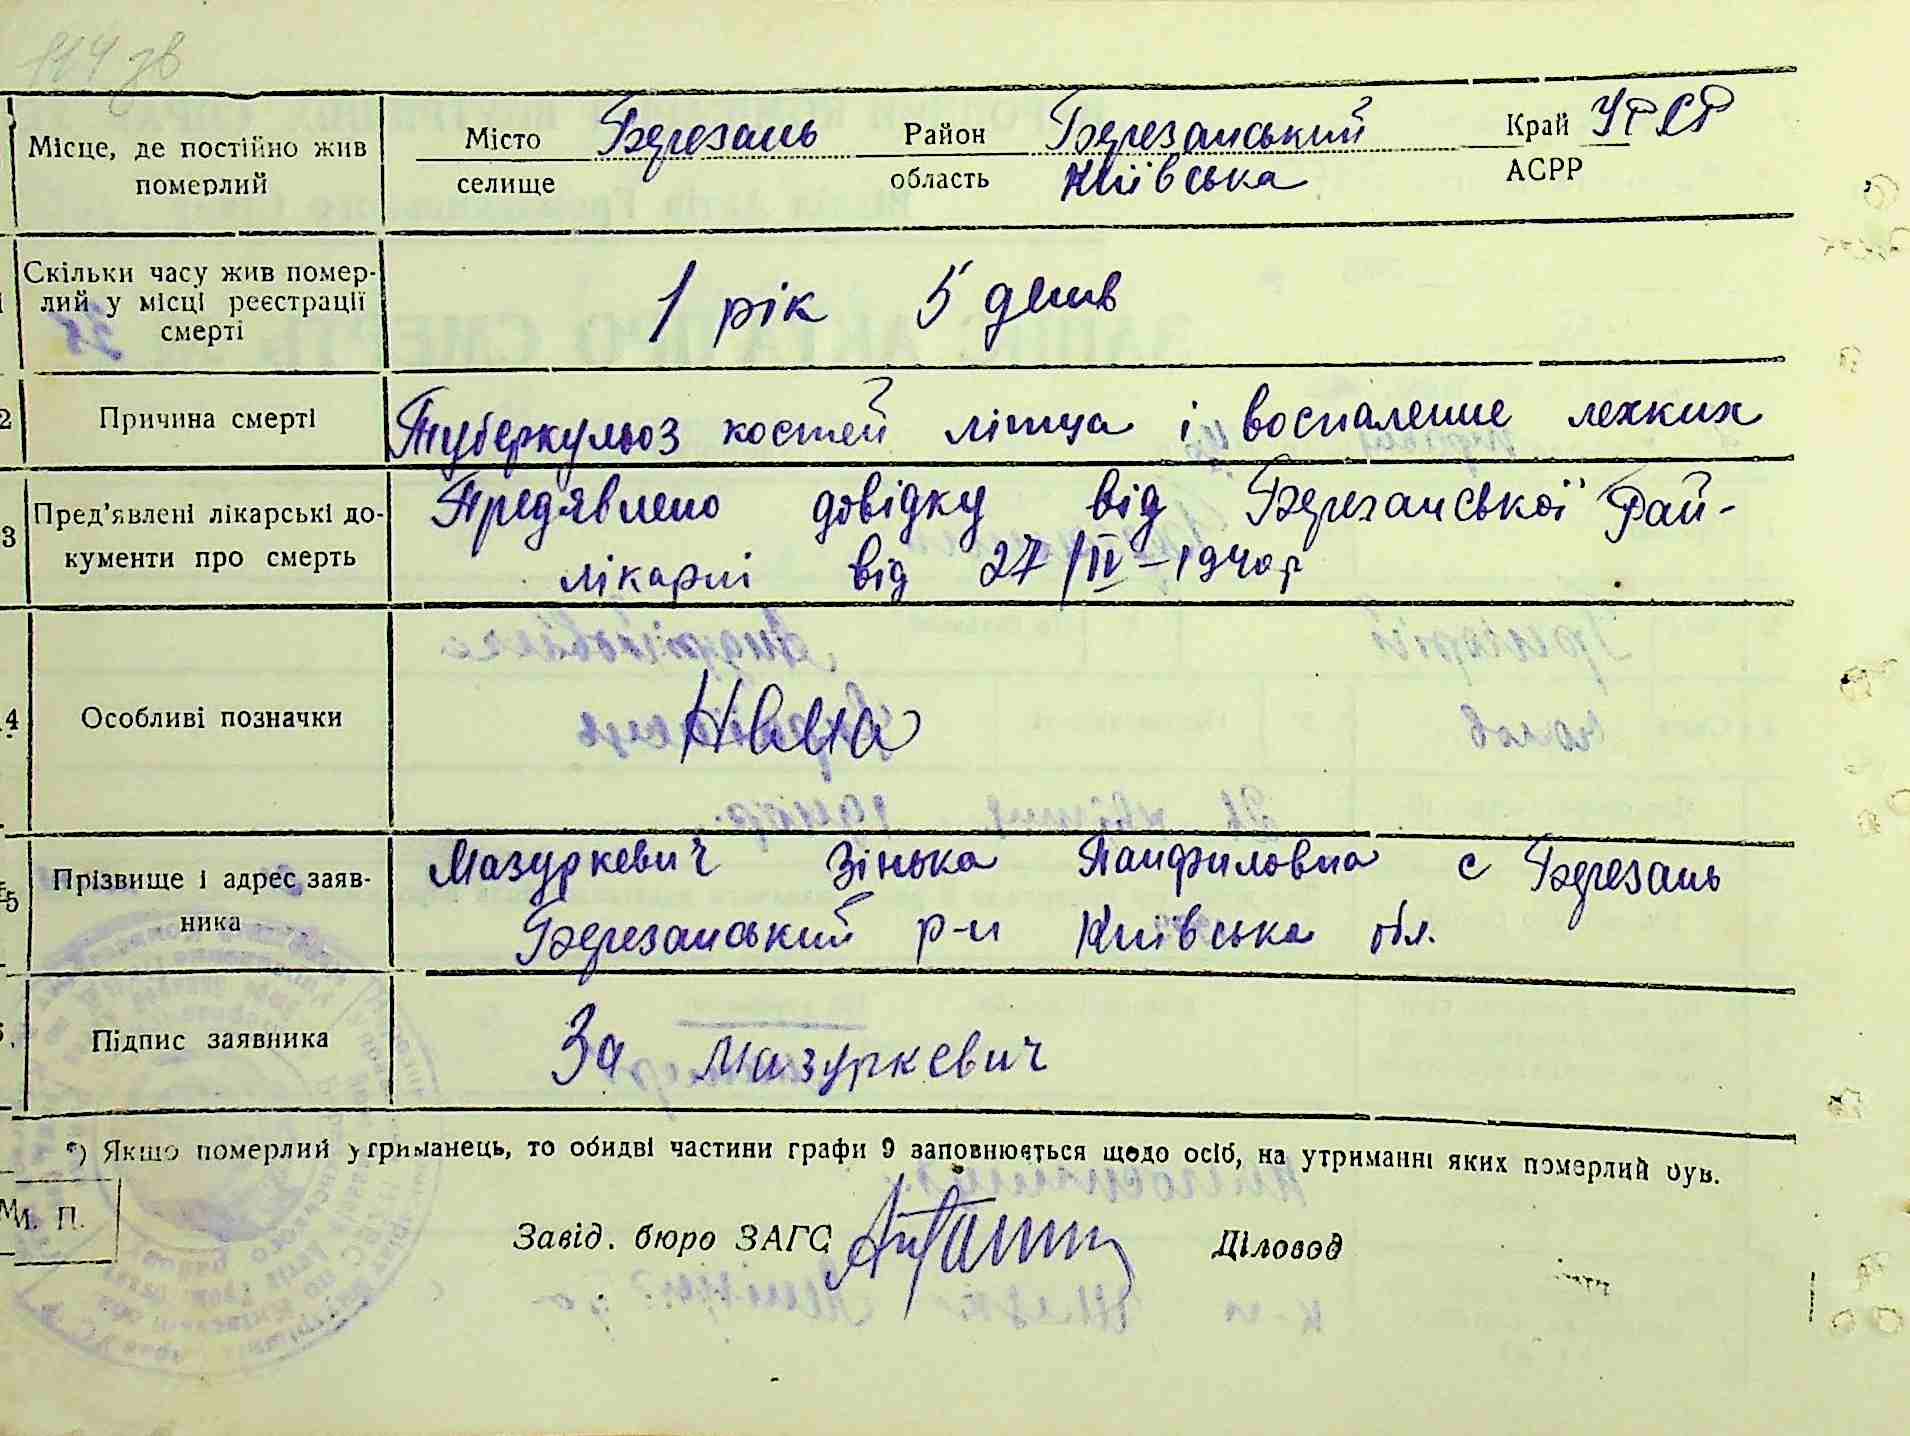 114 зв
Місце, де постійно жив померлий
Місто селище Березань Район область Березанський Київська Край АСРР УРСР
Скільки часу жив помер-
лий у місці реєстрації
смерті
1 рік 5 днів
2 Причина смерті
Туберкульоз костей лінца і воспаление лехких
3 Пред'явлені лікарські до-
кументи про смерть
Предявлено довідку від Березанської Рай-
лікарні від 27/IV-1940р
4. Особливі позначки
Нема
5 Прізвище і адрес заяв-
ника
Мазуркевич Зінька Панфиловна с Березань
Березанський р-н Київська обл.
Підпис заявника
За Мазуркевич
*) Якщо померлий утриманець, то обидві частини графи 9 заповнюється щодо осіб, на утриманні яких померлий був.
М. П.
Завід. бюро ЗАГС Діловод